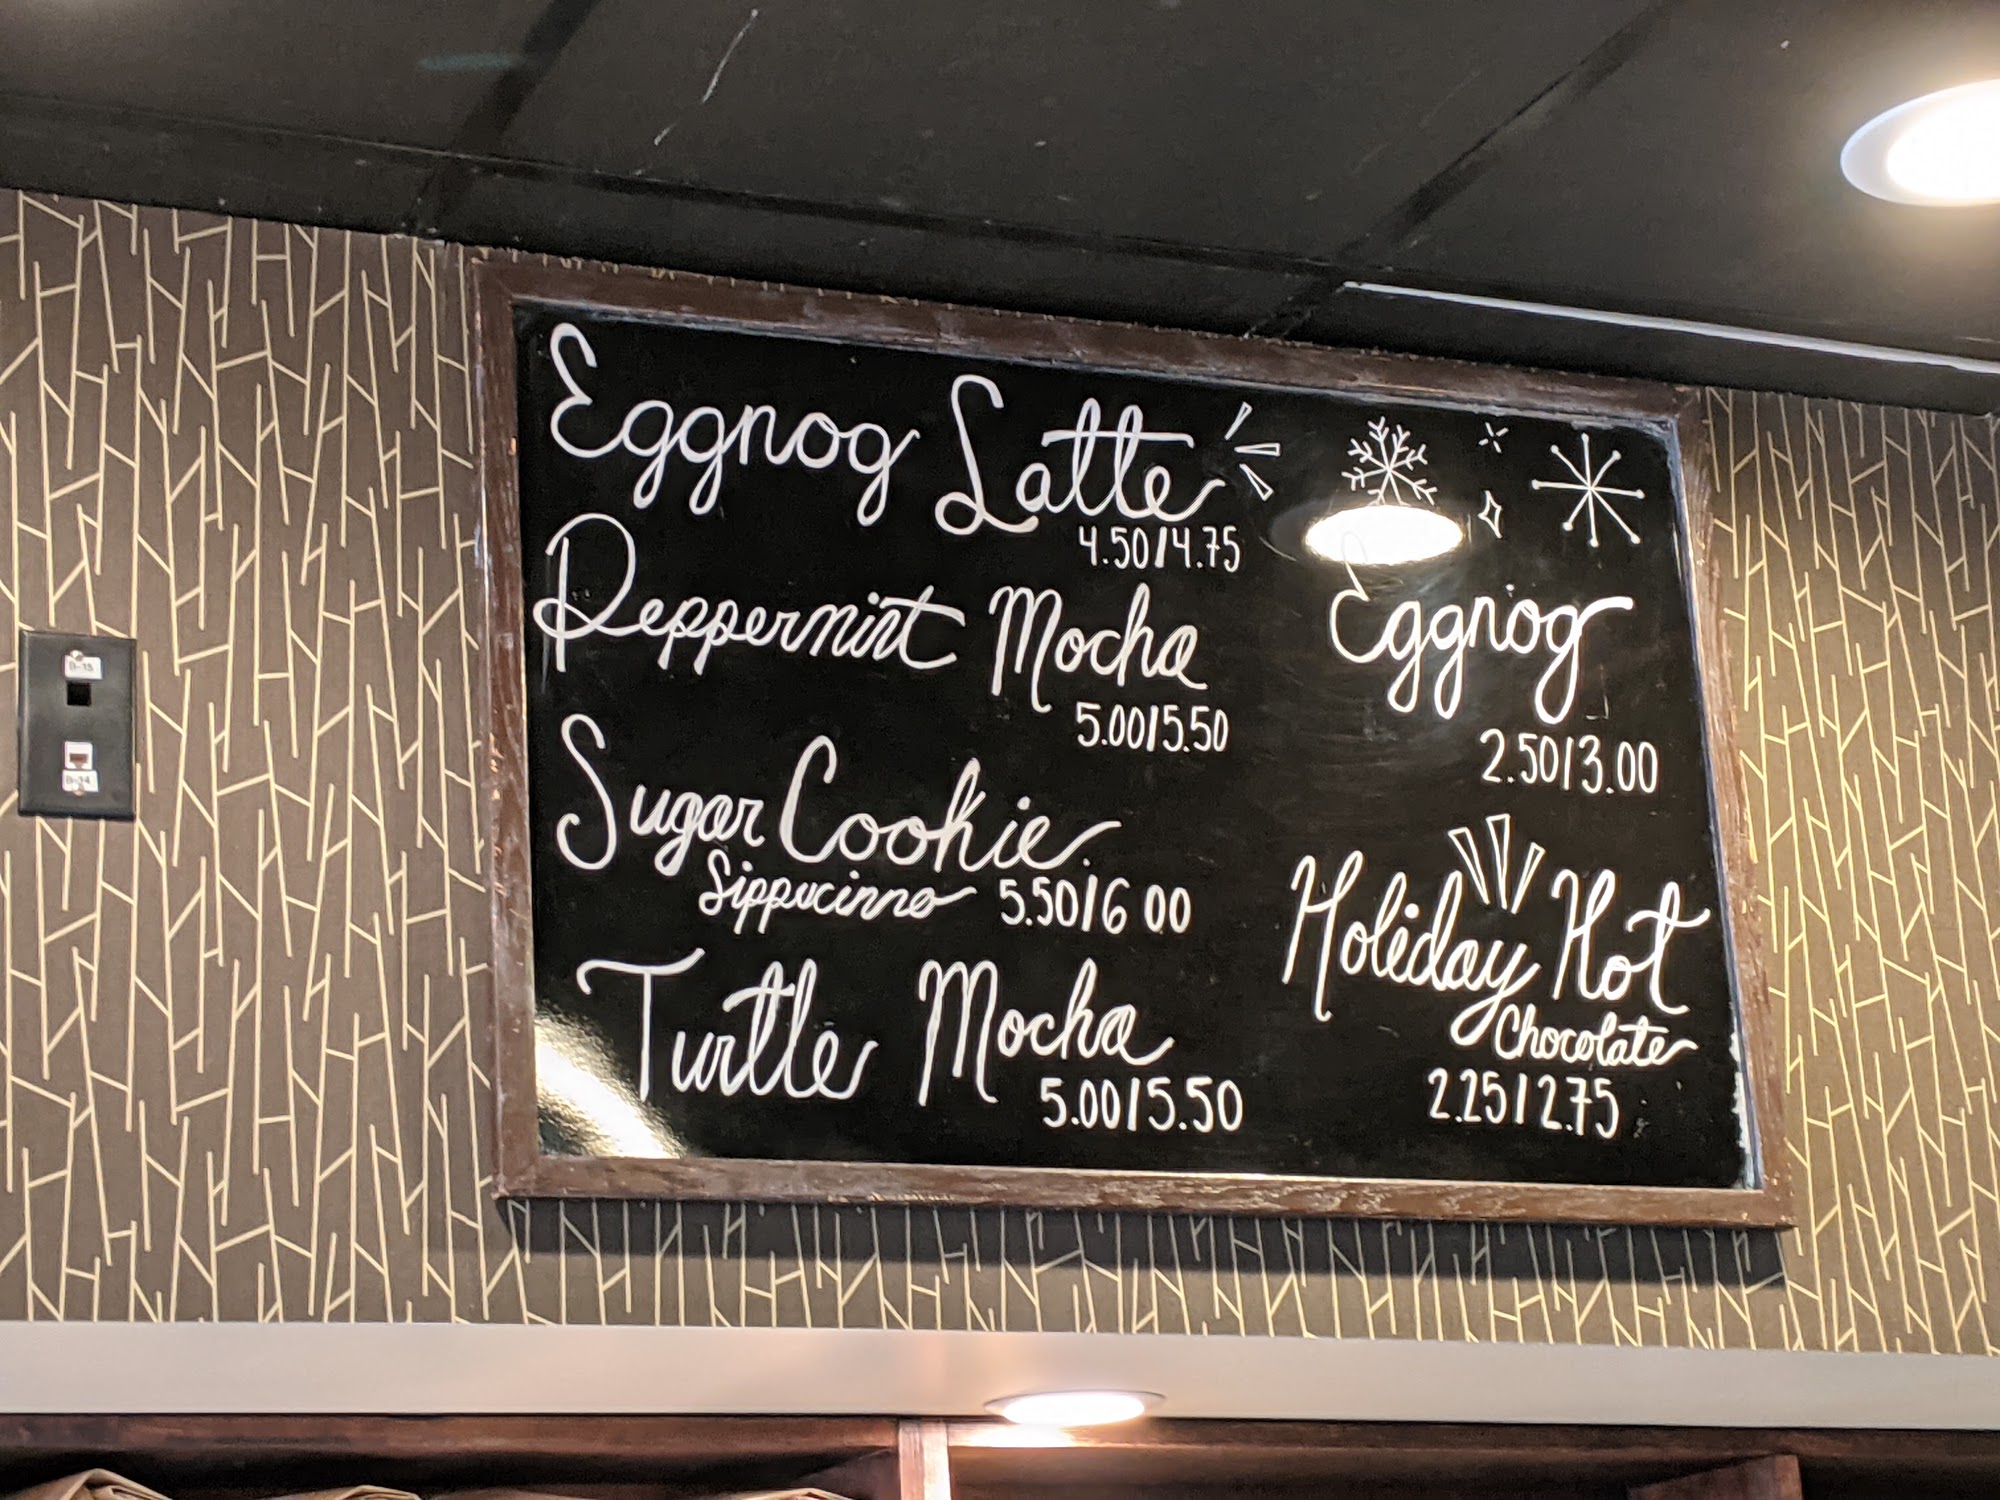 Eggnog Latte
4.50/4.75
Peppermint Mocha
5.00/5.50
Sugar Cookie
Sippucinno 5.50/6.00
Turtle Mocha
5.00/5.50
Eggnog
2.50/3.00
Holiday Hot
Chocolate
2.25/2.75
B-15
B-14